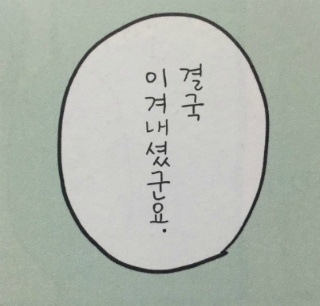 결국
이겨내셨군요.